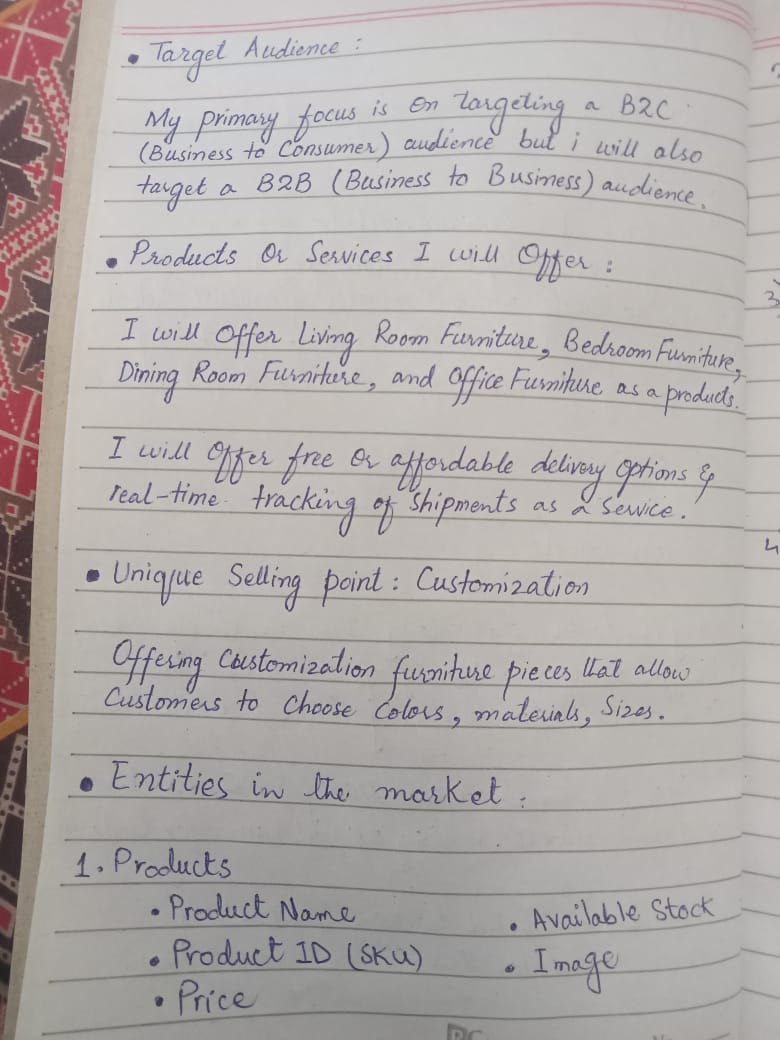 • Target Audience :
My primary focus is on targeting a B2C
(Business to Consumer) audience but i will also
target a B2B (Business to Business) audience.
• Products Or Services I will Offer :
I will Offer Living Room Furniture, Bedroom Furniture,
Dining Room Furniture, and Office Furniture as a products.
I will Offer free Or affordable delivery Options &
real-time tracking of Shipments as a Service.
• Unique Selling point : Customization
Offering Customization furniture pieces that allow
Customers to Choose Colors, materials, Sizes.
• Entities in the market :
1. Products
• Product Name
• Available Stock
• Product ID (SKU)
• Image
• Price
3
4